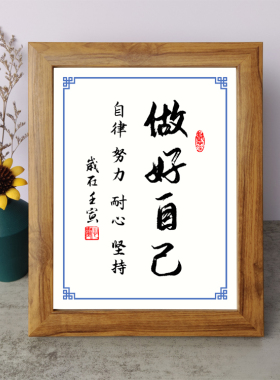 做好自己
自律 努力 耐心 坚持
歲在壬寅